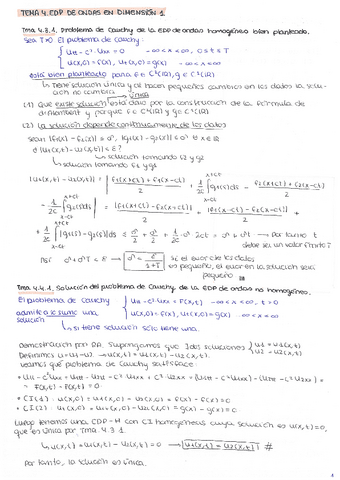 TEMA 4. EDP DE ONDAS EN DIMENSIÓN 1
Tma 4.3.1. Problema de Cauchy de la EDP de ondas homogénea bien planteado.
Sea T>0. El problema de Cauchy:
{ Utt - c²·Uxx = 0   -∞<x<∞, 0≤t≤T
{ U(x,0) = f(x), Ut(x,0) = g(x)   -∞<x<∞
está bien planteado para f∈C²(ℝ), g∈C¹(ℝ)
↳ tiene solución única y al hacer pequeños cambios en los datos la solución no cambia
(1) Que existe solución única está dado por la construcción de la fórmula de
d'Alembert y porque f∈C²(ℝ) y g∈C¹(ℝ)
(2) La solución depende continuamente de los datos
sean |f1(x) - f2(x)| < δ, |g1(x) - g2(x)| < δ ∀x∈ℝ
¿ |U1(x,t) - U2(x,t)| < ε ?
↳ solución tomando f2 y g2
↳ solución tomando f1 y g1
|U1(x,t) - U2(x,t)| = | (f1(x+ct) + f1(x-ct))/2 + 1/2c ∫ g1(s)ds - (f2(x+ct) + f2(x-ct))/2
- 1/2c ∫ g2(s)ds | ≤ |f1(x+ct) - f2(x+ct)|/2 + |f1(x-ct) - f2(x-ct)|/2 +
+ 1/2c ∫ |g1(s) - g2(s)|ds ≤ δ/2 + δ/2 + 1/2c · δ · 2ct = δ + δt → por tanto t
debe ser un valor finito T
Así δ + δT ≤ ε → δ = ε/(1+T) si el error de los datos
es pequeño, el error en la solución será
pequeño
Tma 4.4.1. Solución del problema de Cauchy de la EDP de ondas no homogénea.
El problema de Cauchy { Utt - c²·Uxx = F(x,t)   -∞<x<∞, t>0
admite a lo sumo una { U(x,0) = f(x), Ut(x,0) = g(x)   -∞<x<∞
solución
↳ si tiene solución sólo tiene una.
Demostración por RA. Supongamos que 2 dos soluciones { U1 = U1(x,t)
Definimos U = U1 - U2 → U(x,t) = U1(x,t) - U2(x,t). { U2 = U2(x,t)
Veamos qué problema de Cauchy satisface:
• Utt - c²Uxx = U1tt - U2tt - c²U1xx + c²U2xx = (U1tt - c²U1xx) - (U2tt - c²U2xx) =
= F(x,t) - F(x,t) = 0
• CI(1): U(x,0) = U1(x,0) - U2(x,0) = f(x) - f(x) = 0
• CI(2): Ut(x,0) = U1t(x,0) - U2t(x,0) = g(x) - g(x) = 0
Luego tenemos una EDP-H con CI homogéneas cuya solución es U(x,t) = 0,
que es única por Tma. 4.3.1
↳ U(x,t) = U1(x,t) - U2(x,t) = 0 → U1(x,t) = U2(x,t) #
por tanto, la solución es única.